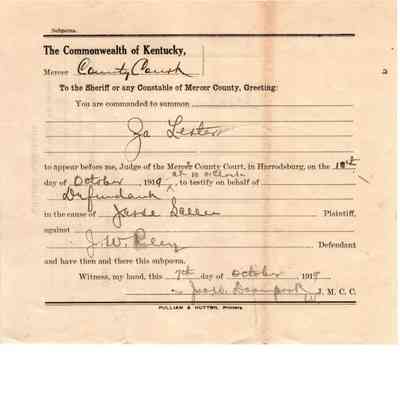 Subpœna.
The Commonwealth of Kentucky,
Mercer County Court
To the Sheriff or any Constable of Mercer County, Greeting:
You are commanded to summon
Lester
to appear before me, Judge of the Mercer County Court, in Harrodsburg, on the
at 10 o'clock
day of October 1919, to testify on behalf of
Defendant
in the cause of Jesse Plaintiff,
against J. W. Defendant
and have then and there this subpœna.
Witness, my hand, this 7th day of October 1919
J. M. C. C.
PULLIAM & HUTTON, Printers